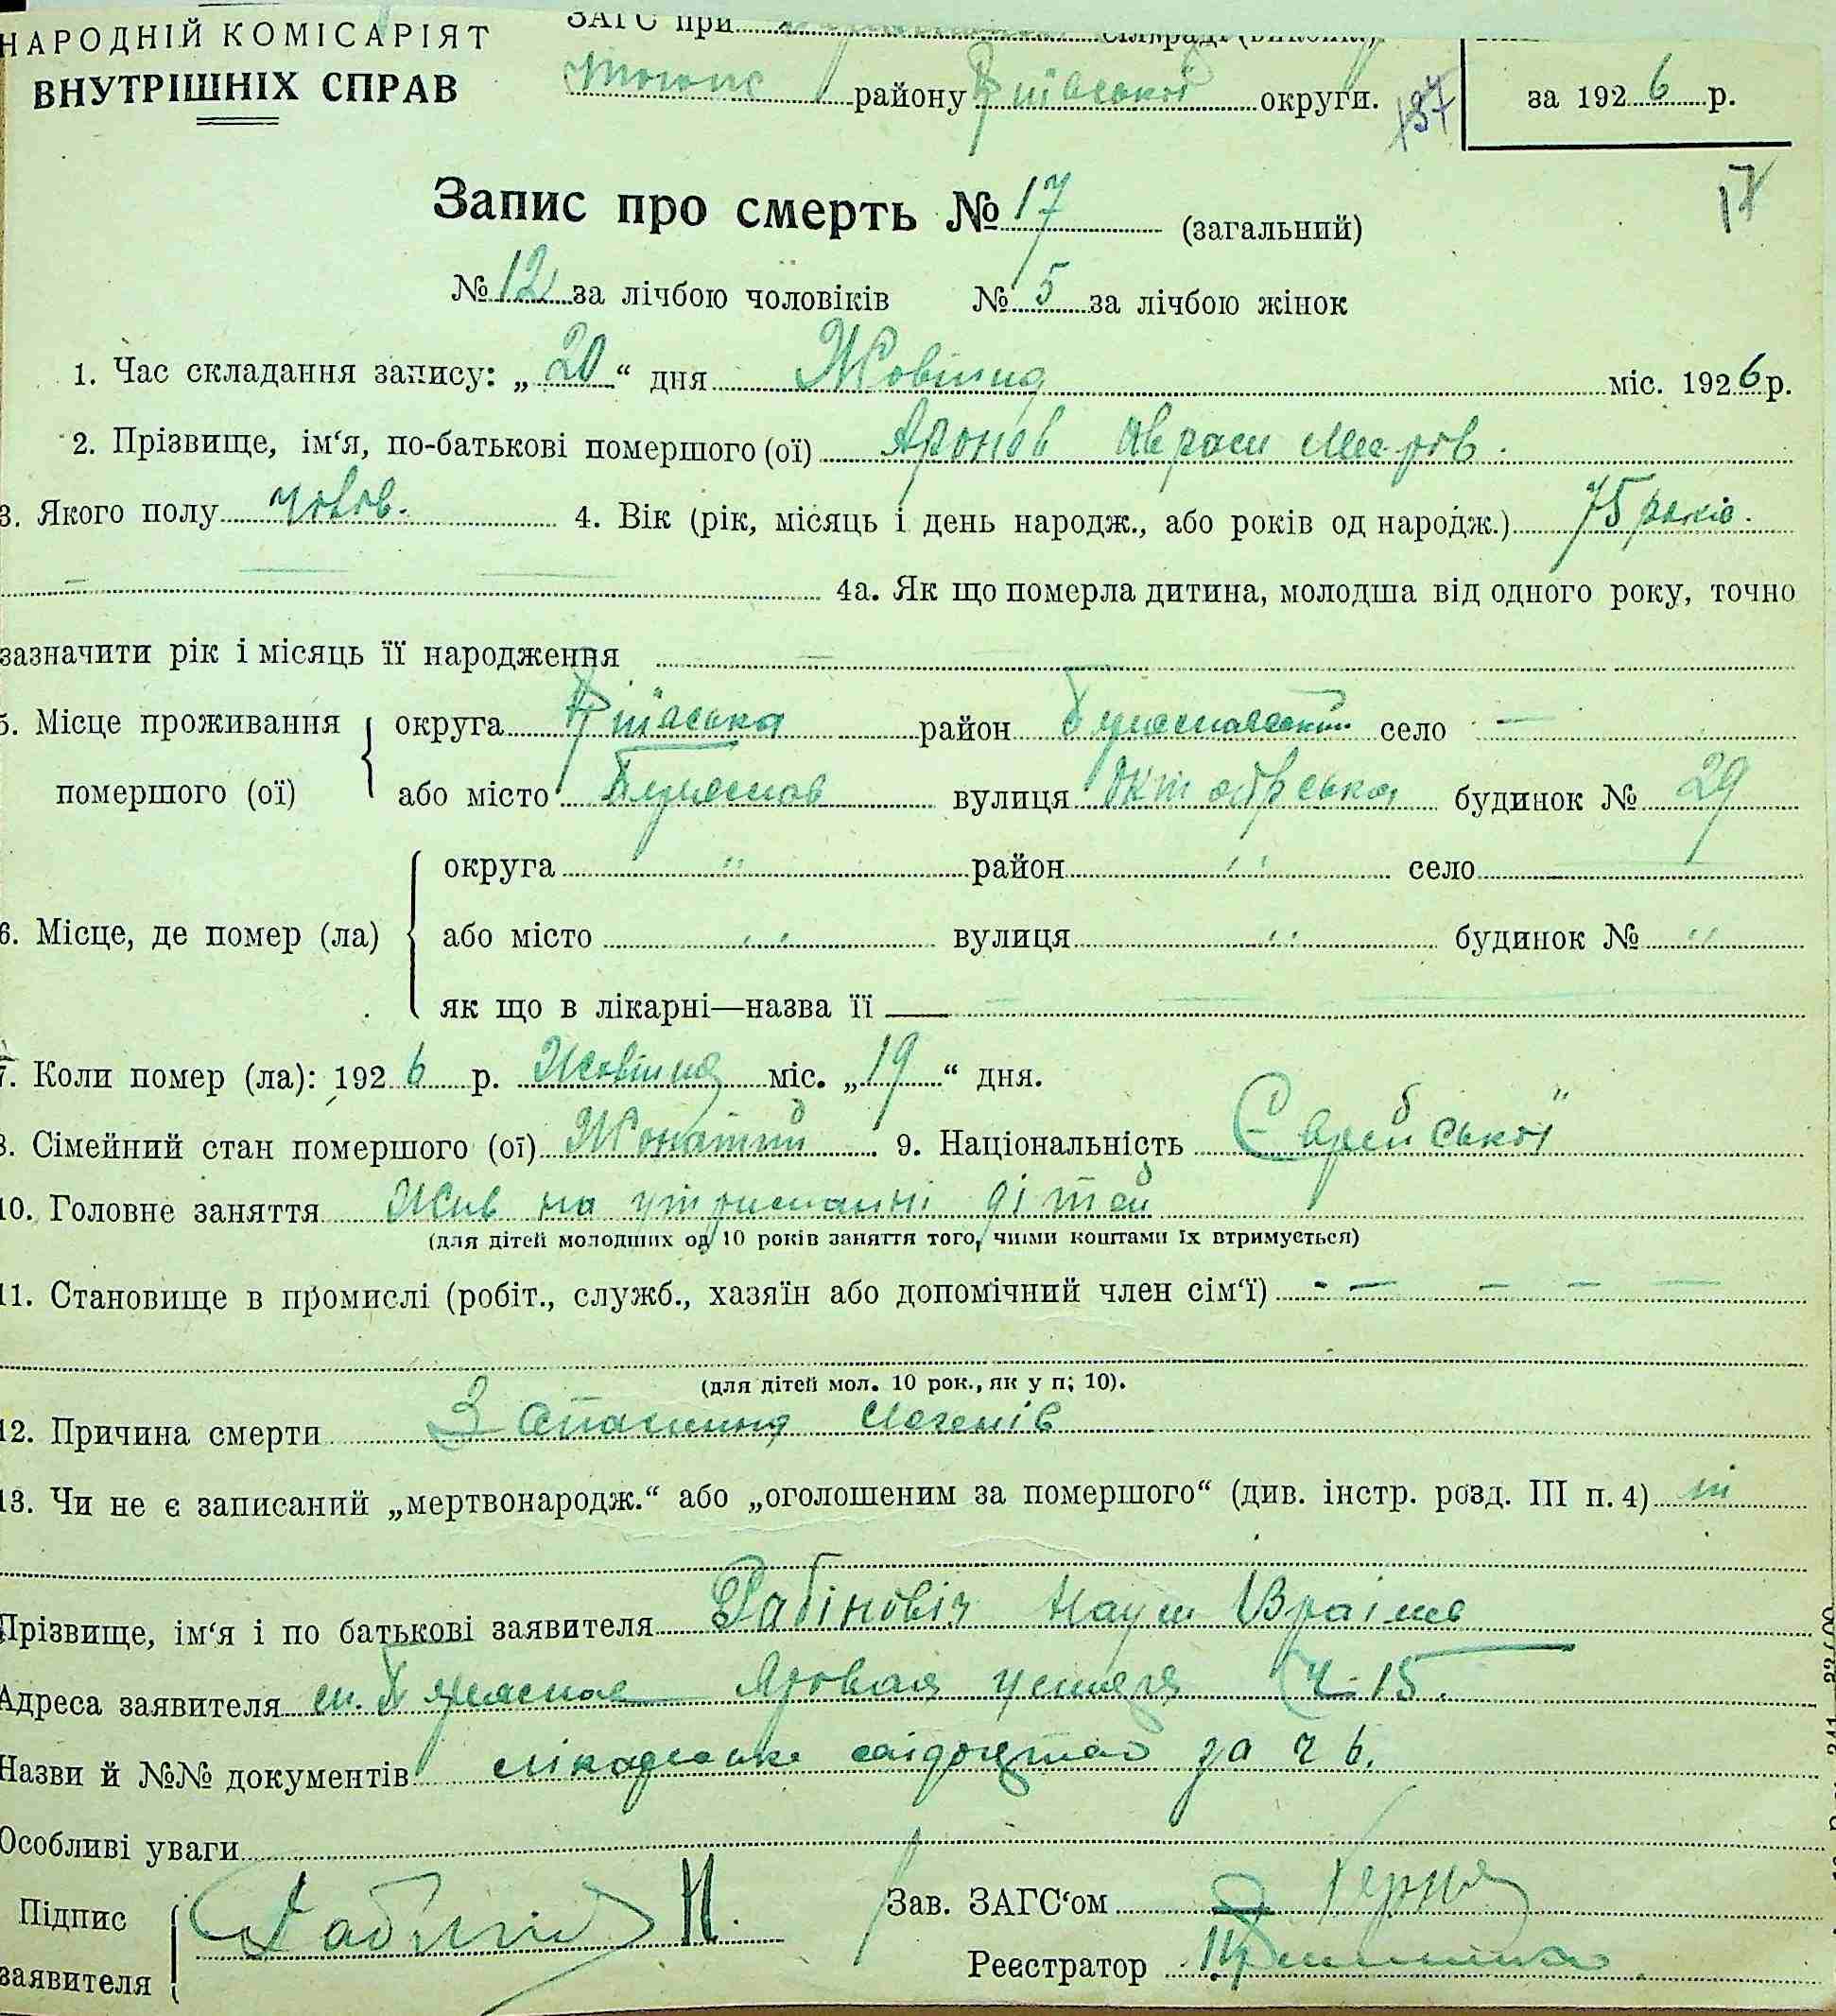 НАРОДНІЙ КОМІСАРІЯТ
ВНУТРІШНІХ СПРАВ
ЗАГС при
району Київської округи.
137
за 1926 р.
Запис про смерть № 17 (загальний)
17
№ 12 за лічбою чоловіків № 5 за лічбою жінок
1. Час складання запису: „20“ дня Жовтня міс. 1926 р.
2. Прізвище, ім‘я, по-батькові помершого (ої) Аронов Аврам
3. Якого полу чолов. 4. Вік (рік, місяць і день народж., або років од народж.) 75 років.
4а. Як що померла дитина, молодша від одного року, точно
зазначити рік і місяць її народження —
5. Місце проживання помершого (ої) округа Київська район село —
або місто вулиця Октябрська будинок № 29
6. Місце, де помер (ла) округа " район " село —
або місто " вулиця " будинок № "
як що в лікарні—назва її —
7. Коли помер (ла): 1926 р. Жовтня міс. „19“ дня.
8. Сімейний стан помершого (ої) Жонатий 9. Національність Єврейської
10. Головне заняття Жив на утриманні дітей
(для дітей молодших од 10 років заняття того, чиїми коштами їх втримується)
11. Становище в промислі (робіт., служб., хазяїн або допомічний член сім‘ї) - — — — —
(для дітей мол. 10 рок., як у п; 10).
12. Причина смерти Запалення легенів
13. Чи не є записаний „мертвонародж.“ або „оголошеним за помершого“ (див. інстр. розд. III п. 4) ні
Прізвище, ім‘я і по батькові заявителя Рабінович Наум
Адреса заявителя м. Яровая 15.
Назви й №№ документів лікарське за ч 6.
Особливі уваги
Підпис заявителя Н.
Зав. ЗАГС‘ом
Реєстратор